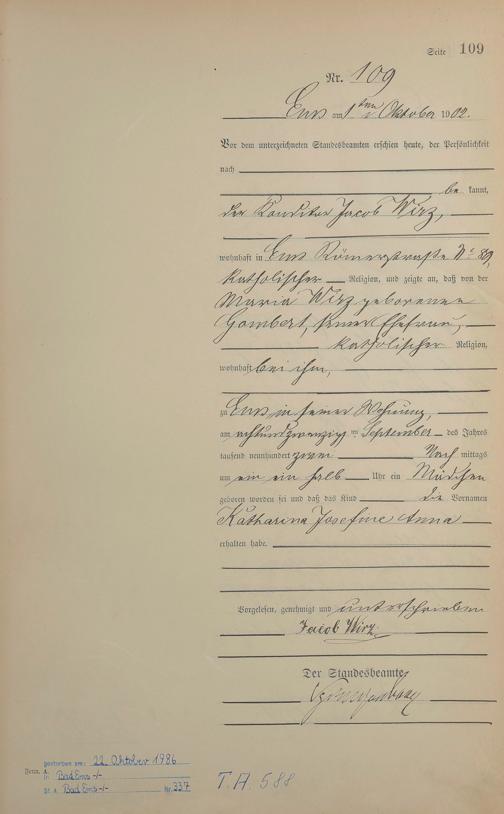 Seite 109
Nr. 109
Ems am 1ten Oktober 1902.
Vor dem unterzeichneten Standesbeamten erschien heute, der Persönlichkeit
nach
be kannt,
der Konditor Jacob Wirz,
wohnhaft in Ems Römerstraße No 89,
katholischer Religion, und zeigte an, daß von der
Maria Wirz geborenen
Gombert, seiner Ehefrau,
katholischer Religion,
wohnhaft bei ihm,
zu Ems in seiner Wohnung,
am achtundzwanzigten September des Jahres
tausend neunhundert zwei Nach mittags
um ein ein halb Uhr ein Mädchen
geboren worden sei und daß das Kind die Vornamen
Katharina Josefine Anna
erhalten habe.
Vorgelesen, genehmigt und unterschrieben
Jacob Wirz.
Der Standesbeamte
gestorben am: 22. Oktober 1986
in Bad Ems -/-
St. A. Bad Ems -/- Nr. 337
T.A. 588